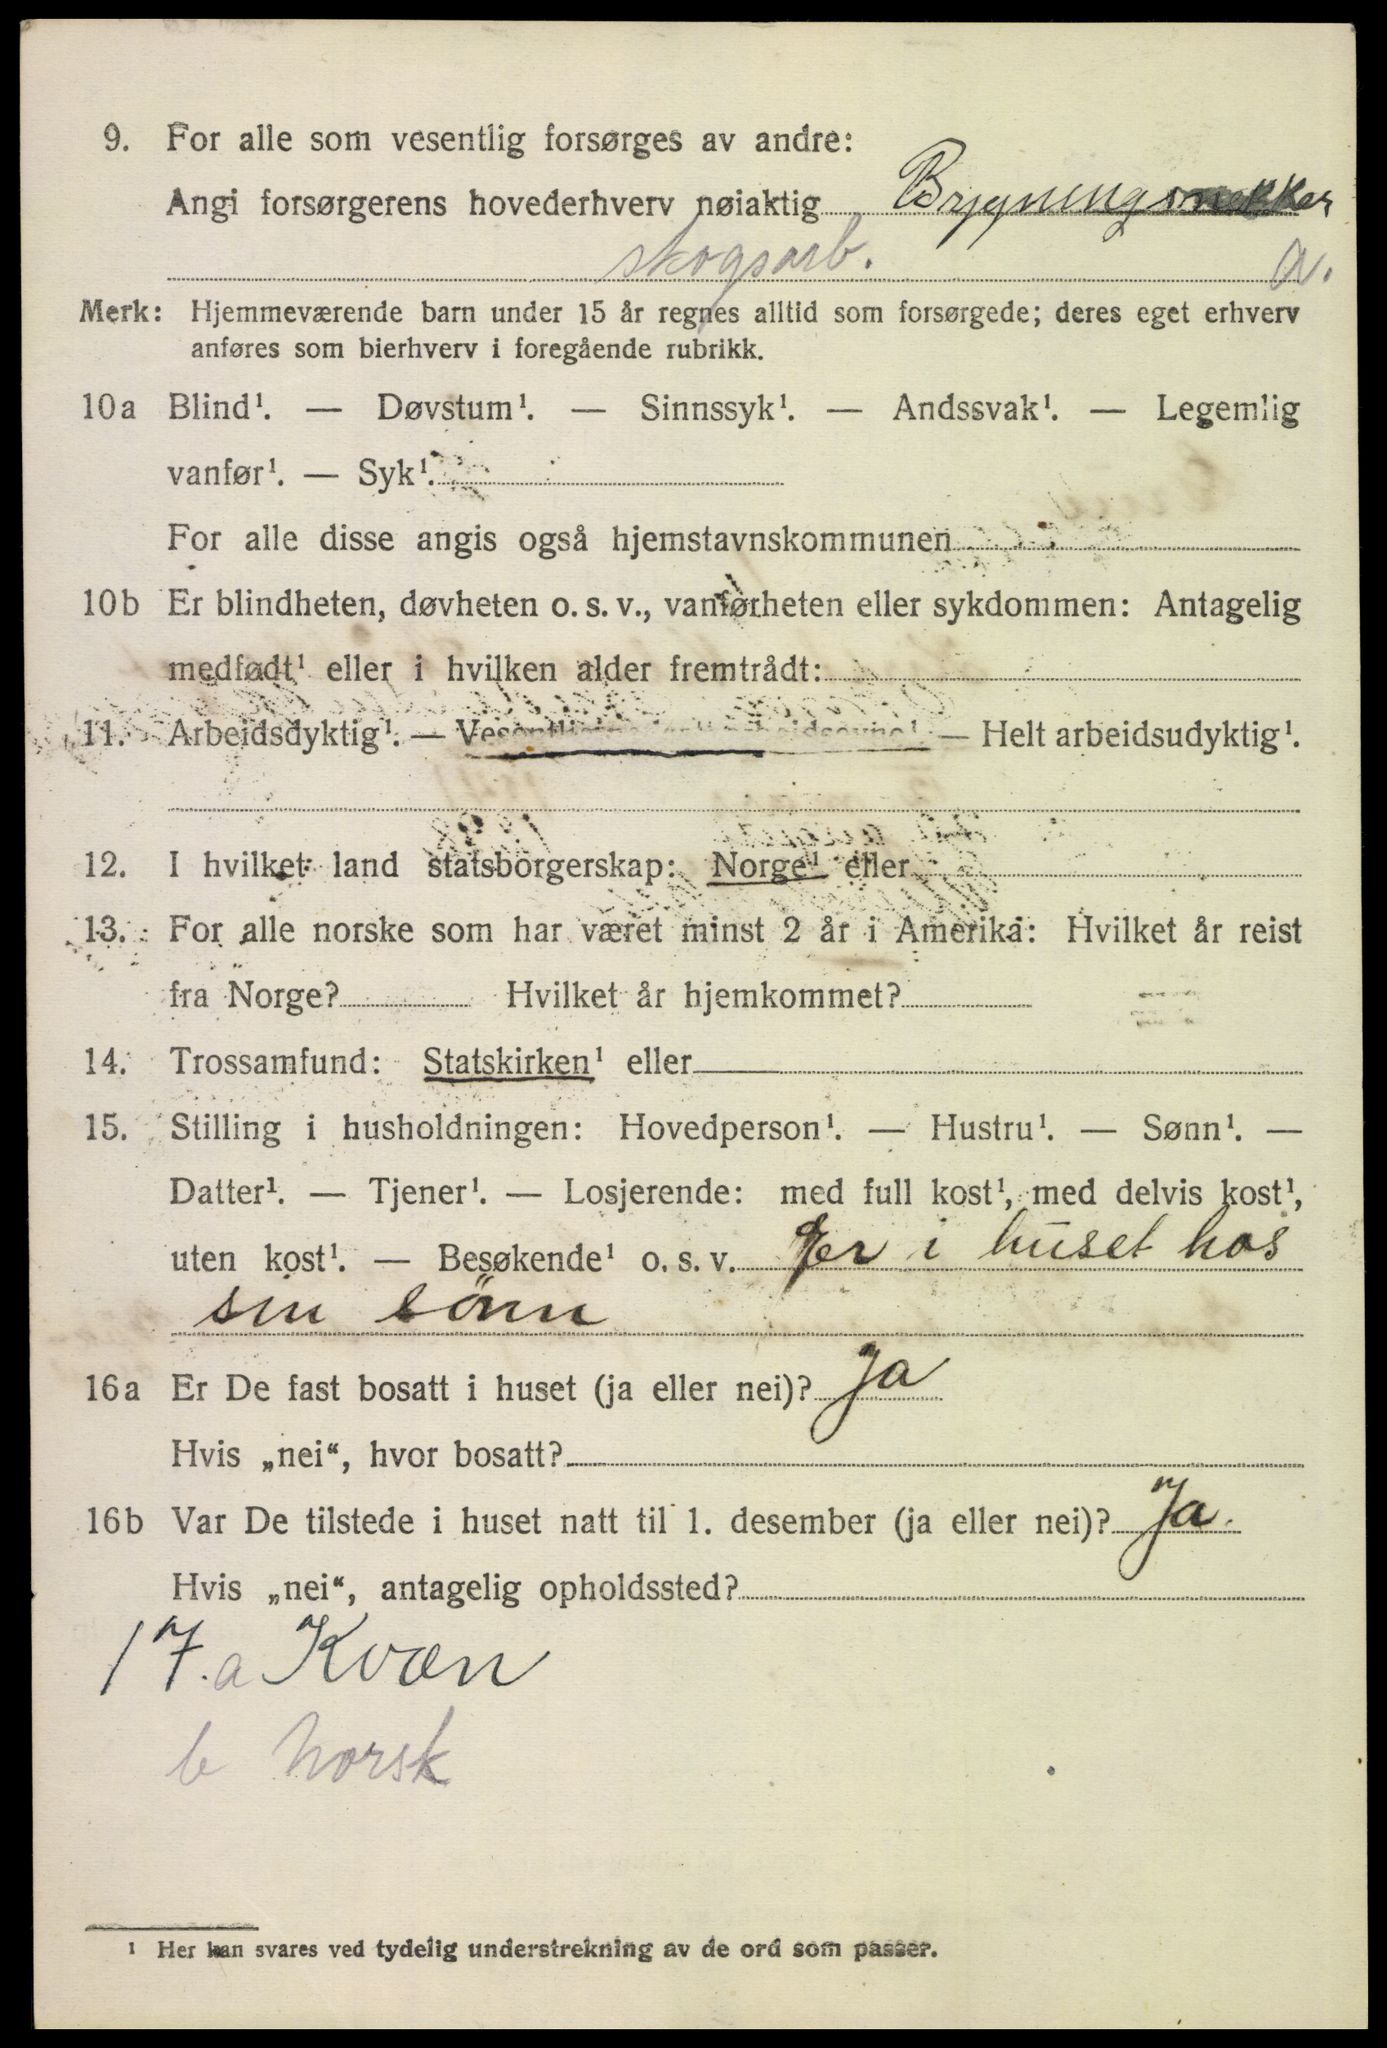 9. For alle som vesentlig forsørges av andre:
Angi forsørgerens hovederhverv nøiaktig Brygningsnekker
skogsarb. a.
Merk: Hjemmeværende barn under 15 år regnes alltid som forsørgede; deres eget erhverv
anføres som bierhverv i foregående rubrikk.
10a Blind¹. — Døvstum¹. — Sinnssyk¹. — Andssvak¹. — Legemlig
vanfør¹. — Syk¹.
For alle disse angis også hjemstavnskommunen
10b Er blindheten, døvheten o. s. v., vanførheten eller sykdommen: Antagelig
medfødt¹ eller i hvilken alder fremtrådt:
11. Arbeidsdyktig¹. — Vesentlig arbeidsevne¹. — Helt arbeidsudyktig¹.
12. I hvilket land statsborgerskap: Norge¹ eller
13. For alle norske som har været minst 2 år i Amerika: Hvilket år reist
fra Norge? Hvilket år hjemkommet?
14. Trossamfund: Statskirken¹ eller
15. Stilling i husholdningen: Hovedperson¹. — Hustru¹. — Sønn¹. —
Datter¹. — Tjener¹. — Losjerende: med full kost¹, med delvis kost¹,
uten kost¹. — Besøkende¹ o. s. v. er i huset hos
sin sönn
16a Er De fast bosatt i huset (ja eller nei)? Ja
Hvis „nei“, hvor bosatt?
16b Var De tilstede i huset natt til 1. desember (ja eller nei)? Ja.
Hvis „nei“, antagelig opholdssted?
17. a Kvæn
b Norsk
¹ Her kan svares ved tydelig understrekning av de ord som passer.